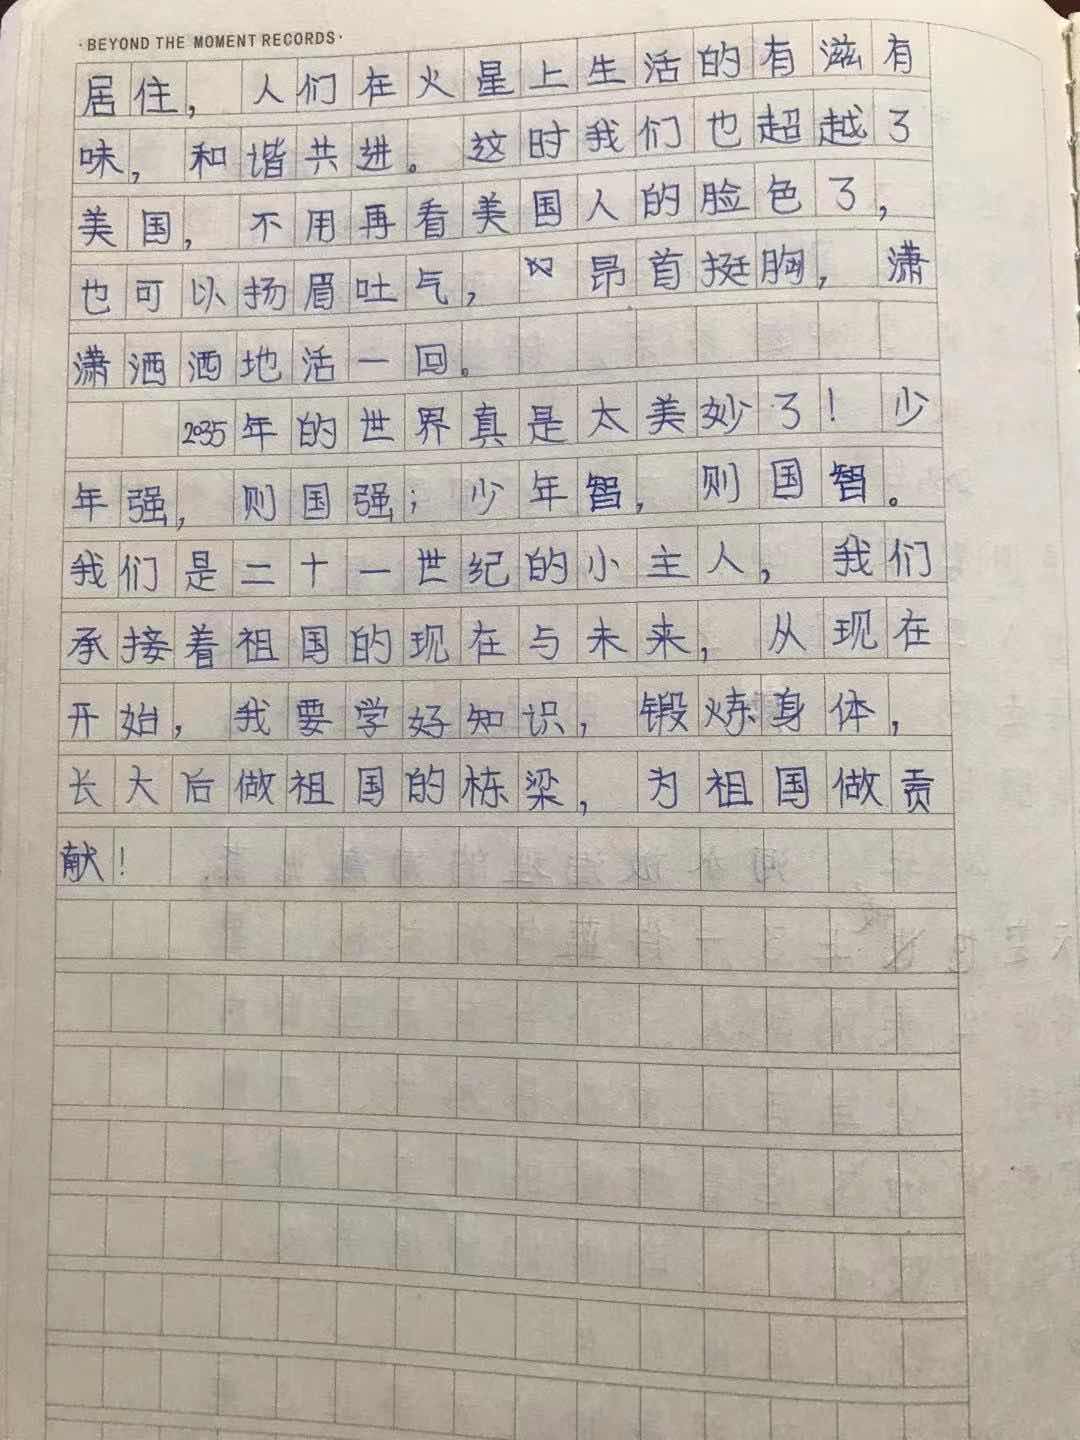 ·BEYOND THE MOMENT RECORDS·
居住，人们在火星上生活的有滋有
味，和谐共进。这时我们也超越了
美国，不用再看美国人的脸色了，
也可以扬眉吐气，昂首挺胸，潇
潇洒洒地活一回。
2035年的世界真是太美妙了！少
年强，则国强；少年智，则国智。
我们是二十一世纪的小主人，我们
承接着祖国的现在与未来，从现在
开始，我要学好知识，锻炼身体，
长大后做祖国的栋梁，为祖国做贡
献！